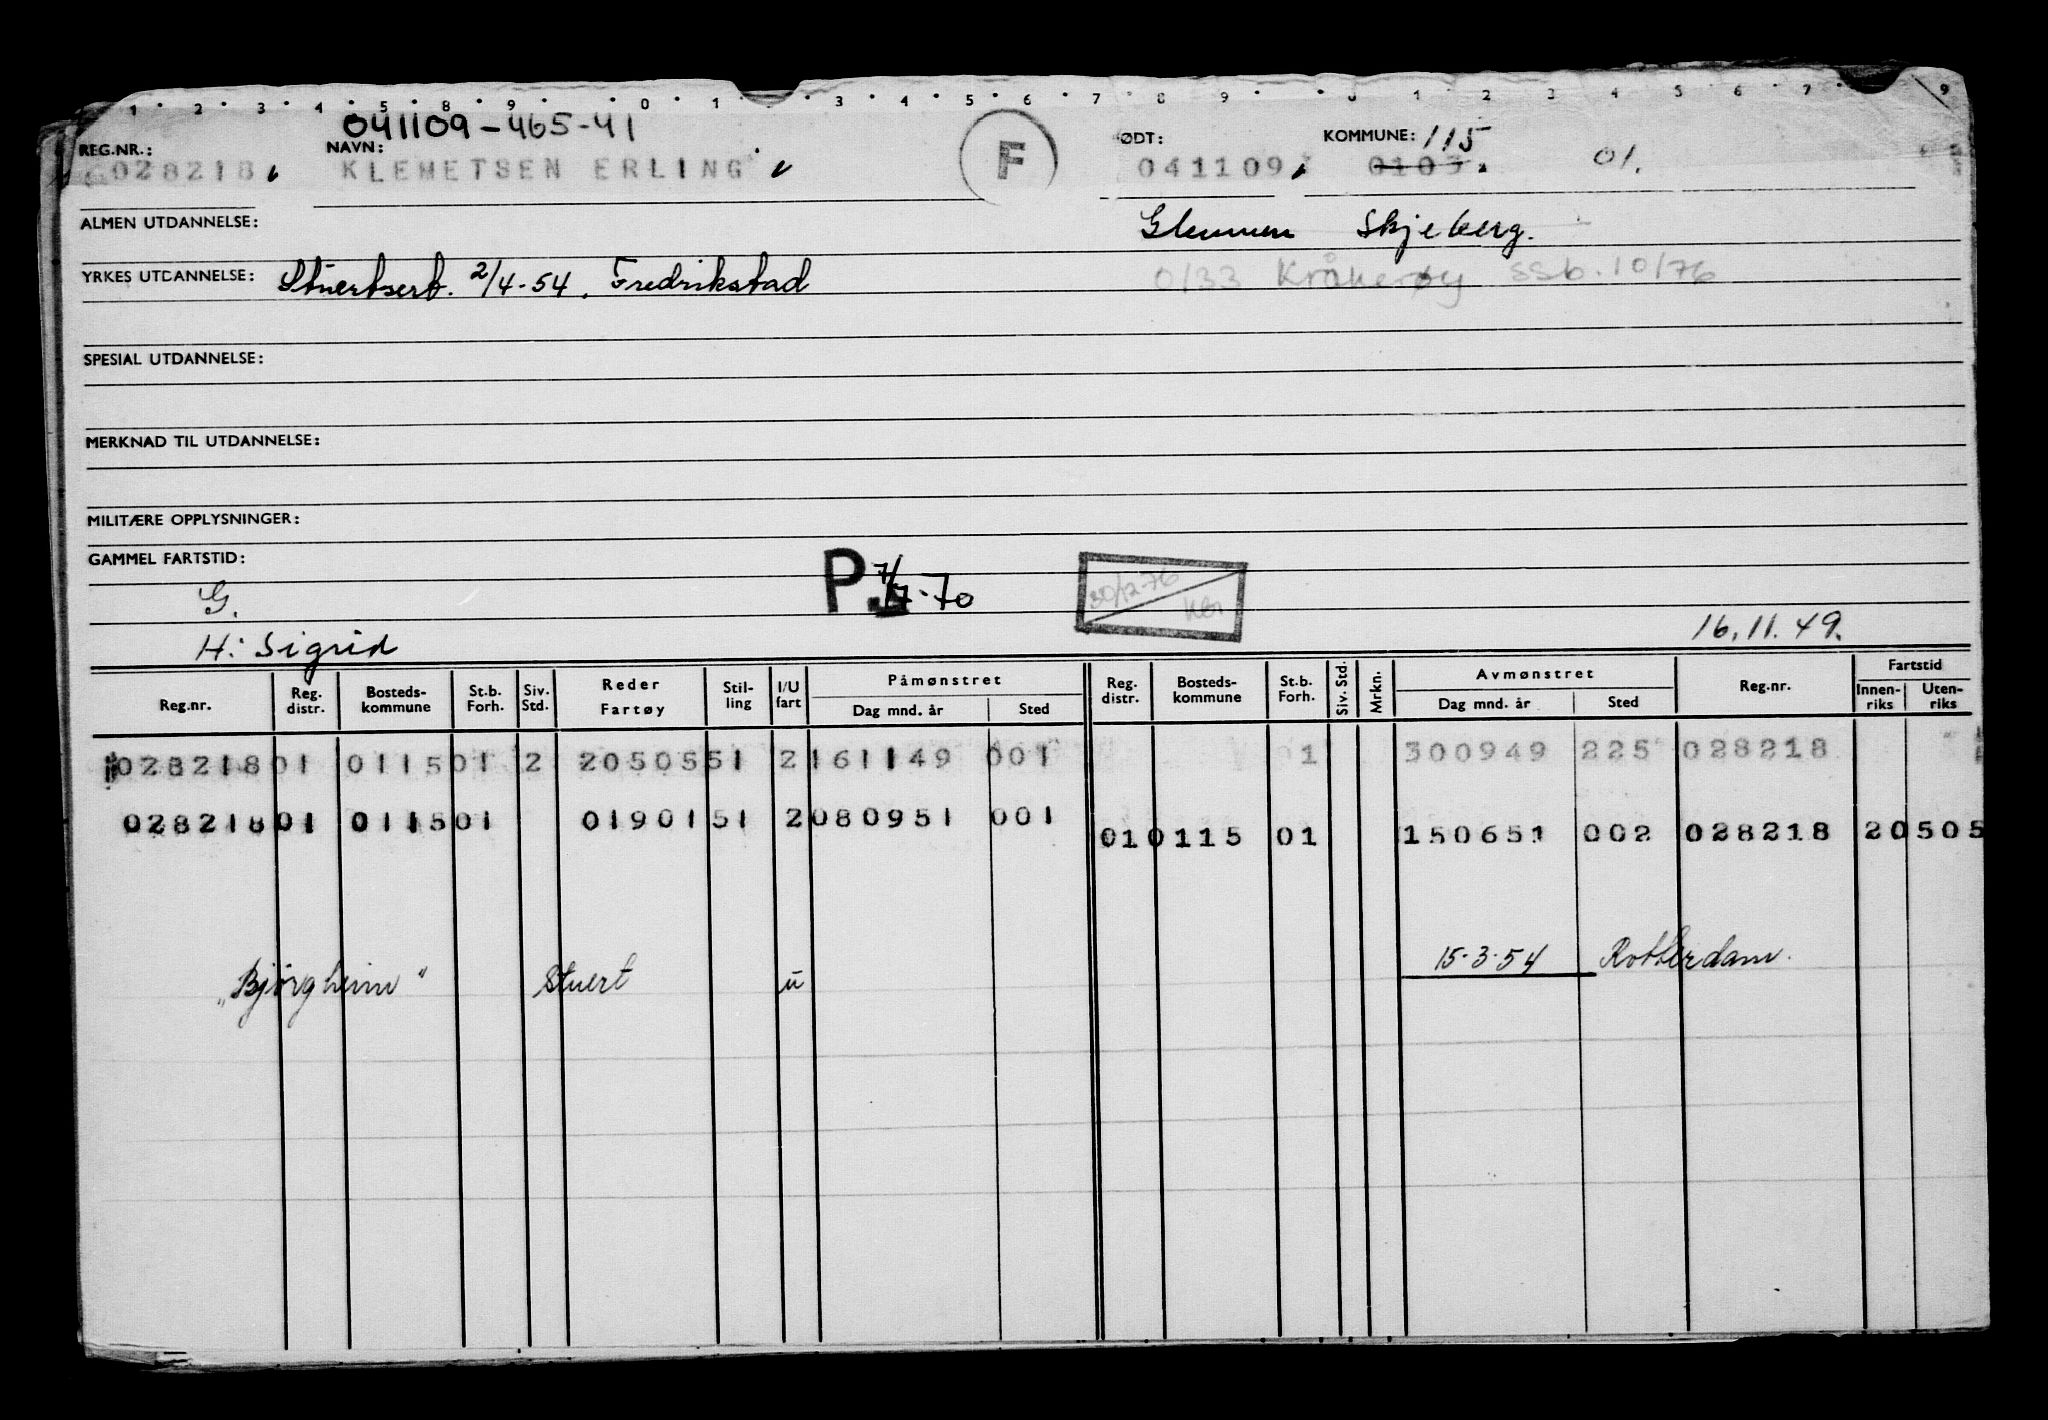 1 · 2 · 3 · 4 · 5 · 8 · 9 · 0 · 1 · 3 · 4 · 5 · 6 · 7 · 8 · 9 · 1 2 3 4 5 6 7 9
041109-465-41
REG.NR.: NAVN: F ØDT: KOMMUNE: 115
028218 KLEMETSEN ERLING 041109 0103 01.
ALMEN UTDANNELSE: Glemmen Skjeberg.
YRKES UTDANNELSE: Stuertsert. 2/4-54. Fredrikstad 0133 Kråkerøy SSb. 10/76
SPESIAL UTDANNELSE:
MERKNAD TIL UTDANNELSE:
MILITÆRE OPPLYSNINGER:
GAMMEL FARTSTID:
G. P. 7/7-70 30/12-76
H: Sigrid 16.11.49.
Reg.nr. Reg. distr. Bosteds-kommune St.b. Forh. Siv. Std. Reder Fartøy Stil-ling I/U fart Påmønstret Dag mnd. år Sted Reg. distr. Bosteds-kommune St.b. Forh. Siv. Std. Mrkn. Avmønstret Dag mnd. år Sted Reg.nr. Fartstid Innen-riks Uten-riks
028218 01 0115 01 2 20505 51 2 161149 001 1 300949 225 028218
028218 01 0115 01 01901 51 2 080951 001 01 0115 01 150651 002 028218 20505
"Bjørgheim" Stuert u 15-3-54 Rotterdam.